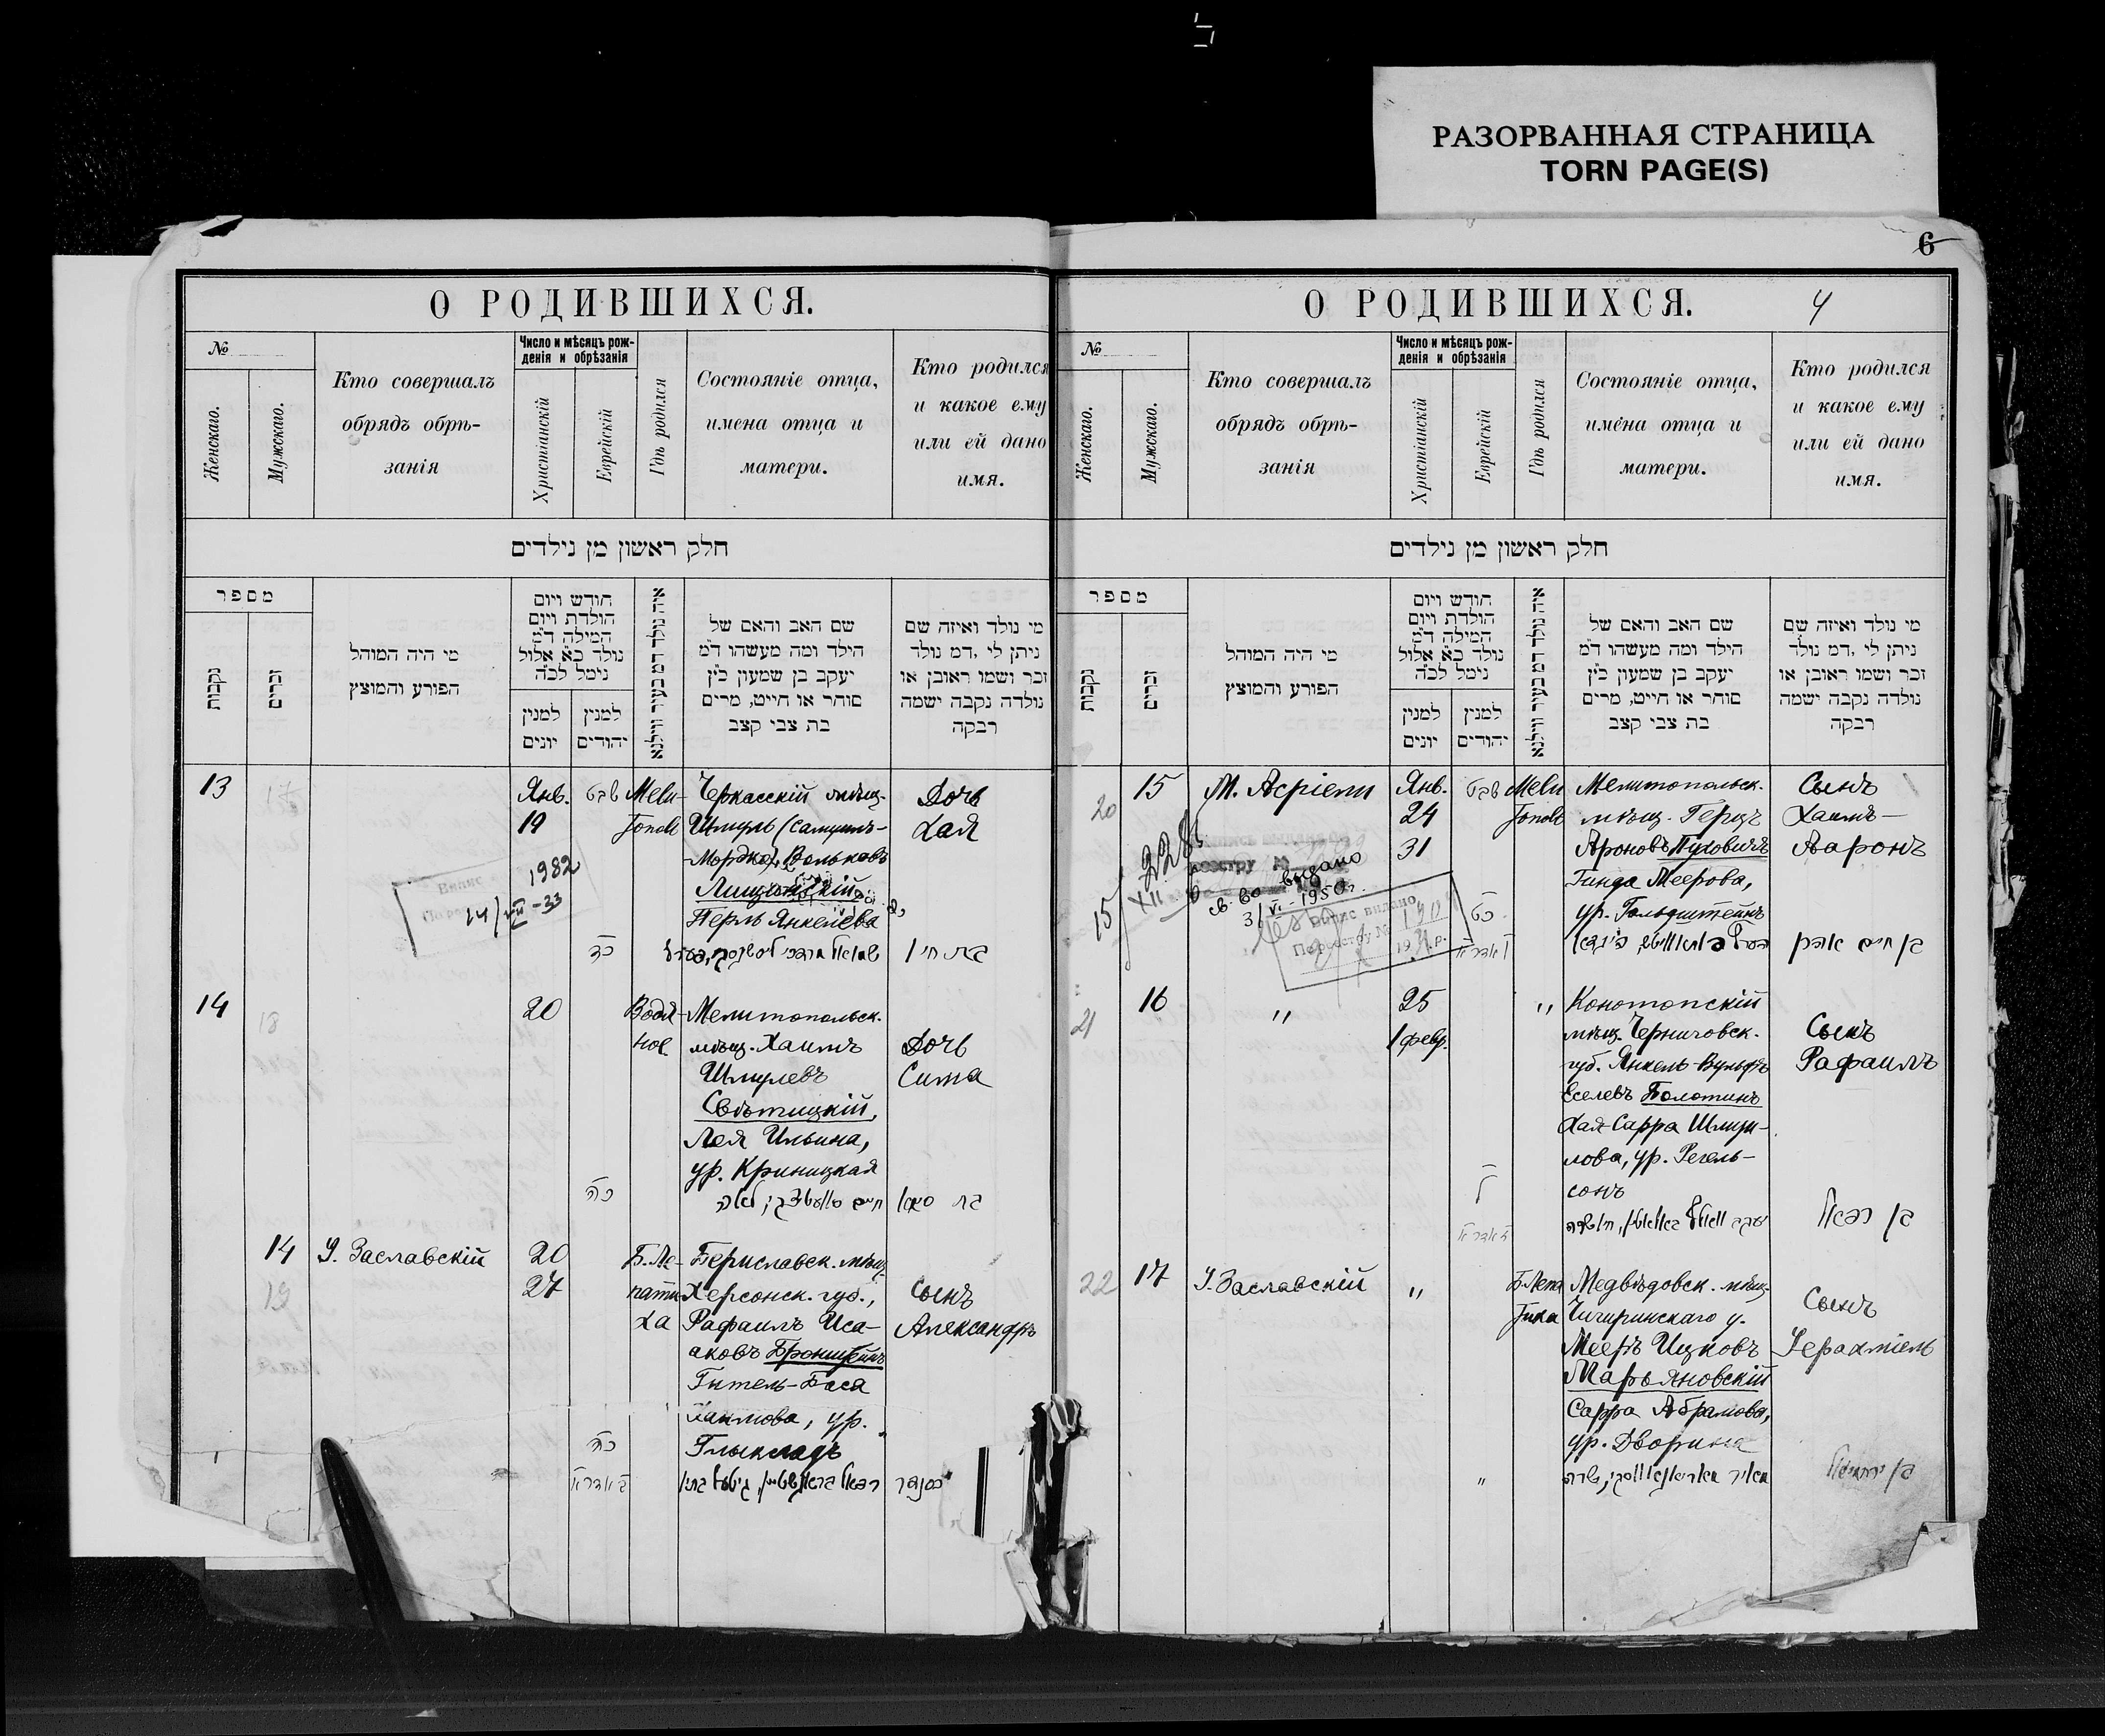 РАЗОРВАННАЯ СТРАНИЦА
TORN PAGE(S)
О РОДИВШИХСЯ.
№
Женскаго.
Мужскаго.
Кто совершалъ
обрядъ обрѣ-
занія
Число и мѣсяцъ рож-
денія и обрѣзанія
Христіанскій
Еврейскій
Гдѣ родился
Состояніе отца,
имена отца и
матери.
Кто родился
и какое ему
или ей дано
имя.
חלק ראשון מן נילדים
מספר
נקבות
זכרים
מי היה המוהל
הפורע והמוצץ
חודש ויום
הולדת ויום
המילה ד״מ
נולד כ״א אלול
נימל לכ״ה
למנין
יונים
למנין
יהודים
איה נולד דמ בעיר ווילנא
שם האב והאם של
הילד ומה מעשהו ד״מ
יעקב בן שמעון כ״ץ
סוחר או חייט, מרים
בת צבי קצב
מי נולד ואיזה שם
ניתן לי ,דמ נולד
זכר ושמו ראובן או
נולדה נקבה ישמה
רבקה
13
Янв.
19
שבט
כד
Мели-
тополь
Черкасскій мѣщ.
Шмуль (Самуилъ-
Мордко) Вольковъ
Лищинскій
Перль Янкелева
Дочь
Хая
בת חי׳
1982
14/VII-33
14
18
20
כה
Водя-
ное
Мелитопольск.
мѣщ. Хаимъ
Шмулевъ
Свѣтицкій,
Лея Ильина,
ур. Криницкая
Дочь
Сима
14
19
У. Заславскій
20
27
כה
ב אדר א
Б. Ле-
пати-
ха
Бериславск. мѣщ.
Херсонск. губ.,
Рафаилъ Иса-
аковъ Бронштейнъ
Гитель-Бася
Хаимова, ур.
Глыкладъ
Сынъ
Александръ
6
О РОДИВШИХСЯ.
4
№
Женскаго.
Мужскаго.
Кто совершалъ
обрядъ обрѣ-
занія
Число и мѣсяцъ рож-
денія и обрѣзанія
Христіанскій
Еврейскій
Гдѣ родился
Состояніе отца,
имена отца и
матери.
Кто родился
и какое ему
или ей дано
имя.
חלק ראשון מן נילדים
מספר
נקבות
זכרים
מי היה המוהל
הפורע והמוצץ
חודש ויום
הולדת ויום
המילה ד״מ
נולד כ״א אלול
נימל לכ״ה
למנין
יונים
למנין
יהודים
איה נולד דמ בעיר ווילנא
שם האב והאם של
הילד ומה מעשהו ד״מ
יעקב בן שמעון כ״ץ
סוחר או חייט, מרים
בת צבי קצב
מי נולד ואיזה שם
ניתן לי ,דמ נולד
זכר ושמו ראובן או
נולדה נקבה ישמה
רבקה
20
15
М. Асріели
Янв.
24
31
שבט
כט
Мели
тополь
Мелитопольск.
мѣщ. Герцъ
Ароновъ Пуховичъ
Гинда Меерова,
ур. Гольдштейнъ
Сынъ
Хаимъ-
Ааронъ
בן חיים אהרן
св-во выдано
3/VI-1950г.
Випис видано
21
16
"
25
1 февр.
ל
"
Конотопскій
мѣщ. Черниговск.
губ. Янкель-Вульфъ
Еселевъ Болотинъ
Хая-Сарра Шлиуи-
лова, ур. Регель-
сонъ
Сынъ
Рафаилъ
בן רפאל
22
17
У. Заславскій
"
"
Б. Лепа
тиха
Медвѣдовск. мѣщ.
Чигиринскаго у.
Мееръ Ицковъ
Марьяновскій
Сарра Абрамова,
ур. Дворина
Сынъ
Іерахміель
בן ירחמיאל